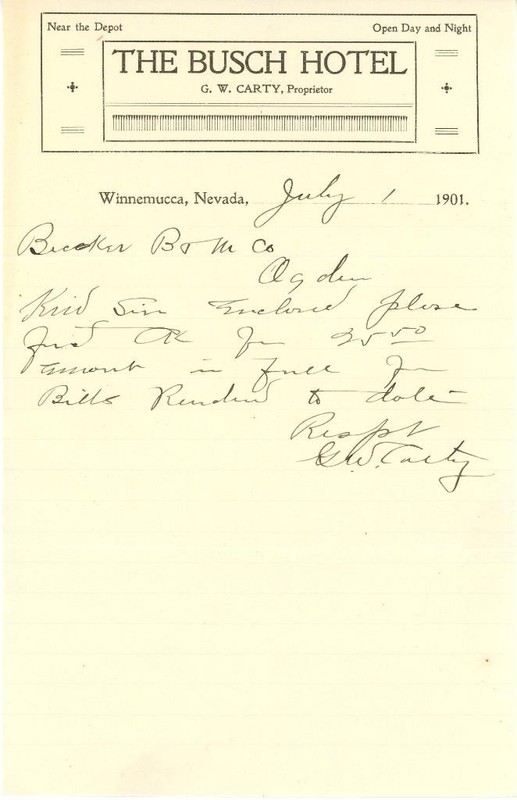 Near the Depot Open Day and Night
THE BUSCH HOTEL
G. W. CARTY, Proprietor
Winnemucca, Nevada, July 1 1901.
Becker B & M Co
Ogden
Kind Sir Enclosed please
find Ck for 25 50
amount in full for
Bills Rendered to date
Respt
G.W. Carty